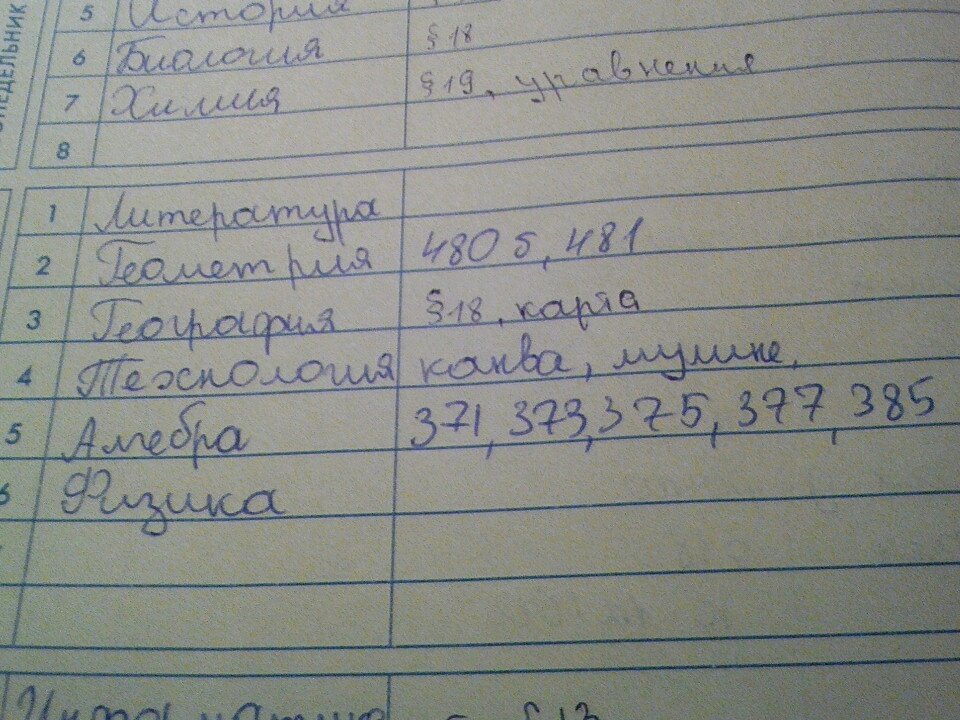 5 История
6 Биология §18
7 Химия §19, уравнения
8
1 Литература
2 Геометрия 480 б, 481
3 География §18, карта
4 Технология канва, мулине,
5 Алгебра 371, 373, 375, 377, 385
6 Физика